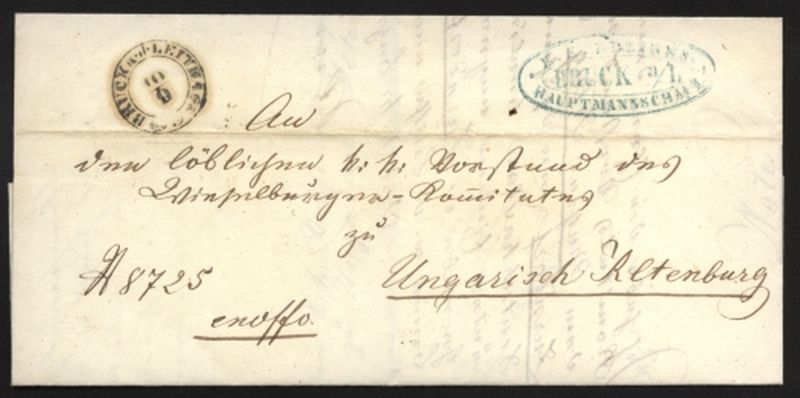 BRUCK a.d. LEITHA
10
9
K. K. BEZIRKS
BRUCK a/L
HAUPTMANNSCHAFT
An
den löblichen k: k: Vorstand des
Wieselburger-Komitates
zu
Ungarisch Altenburg
N 8725
exoffo.